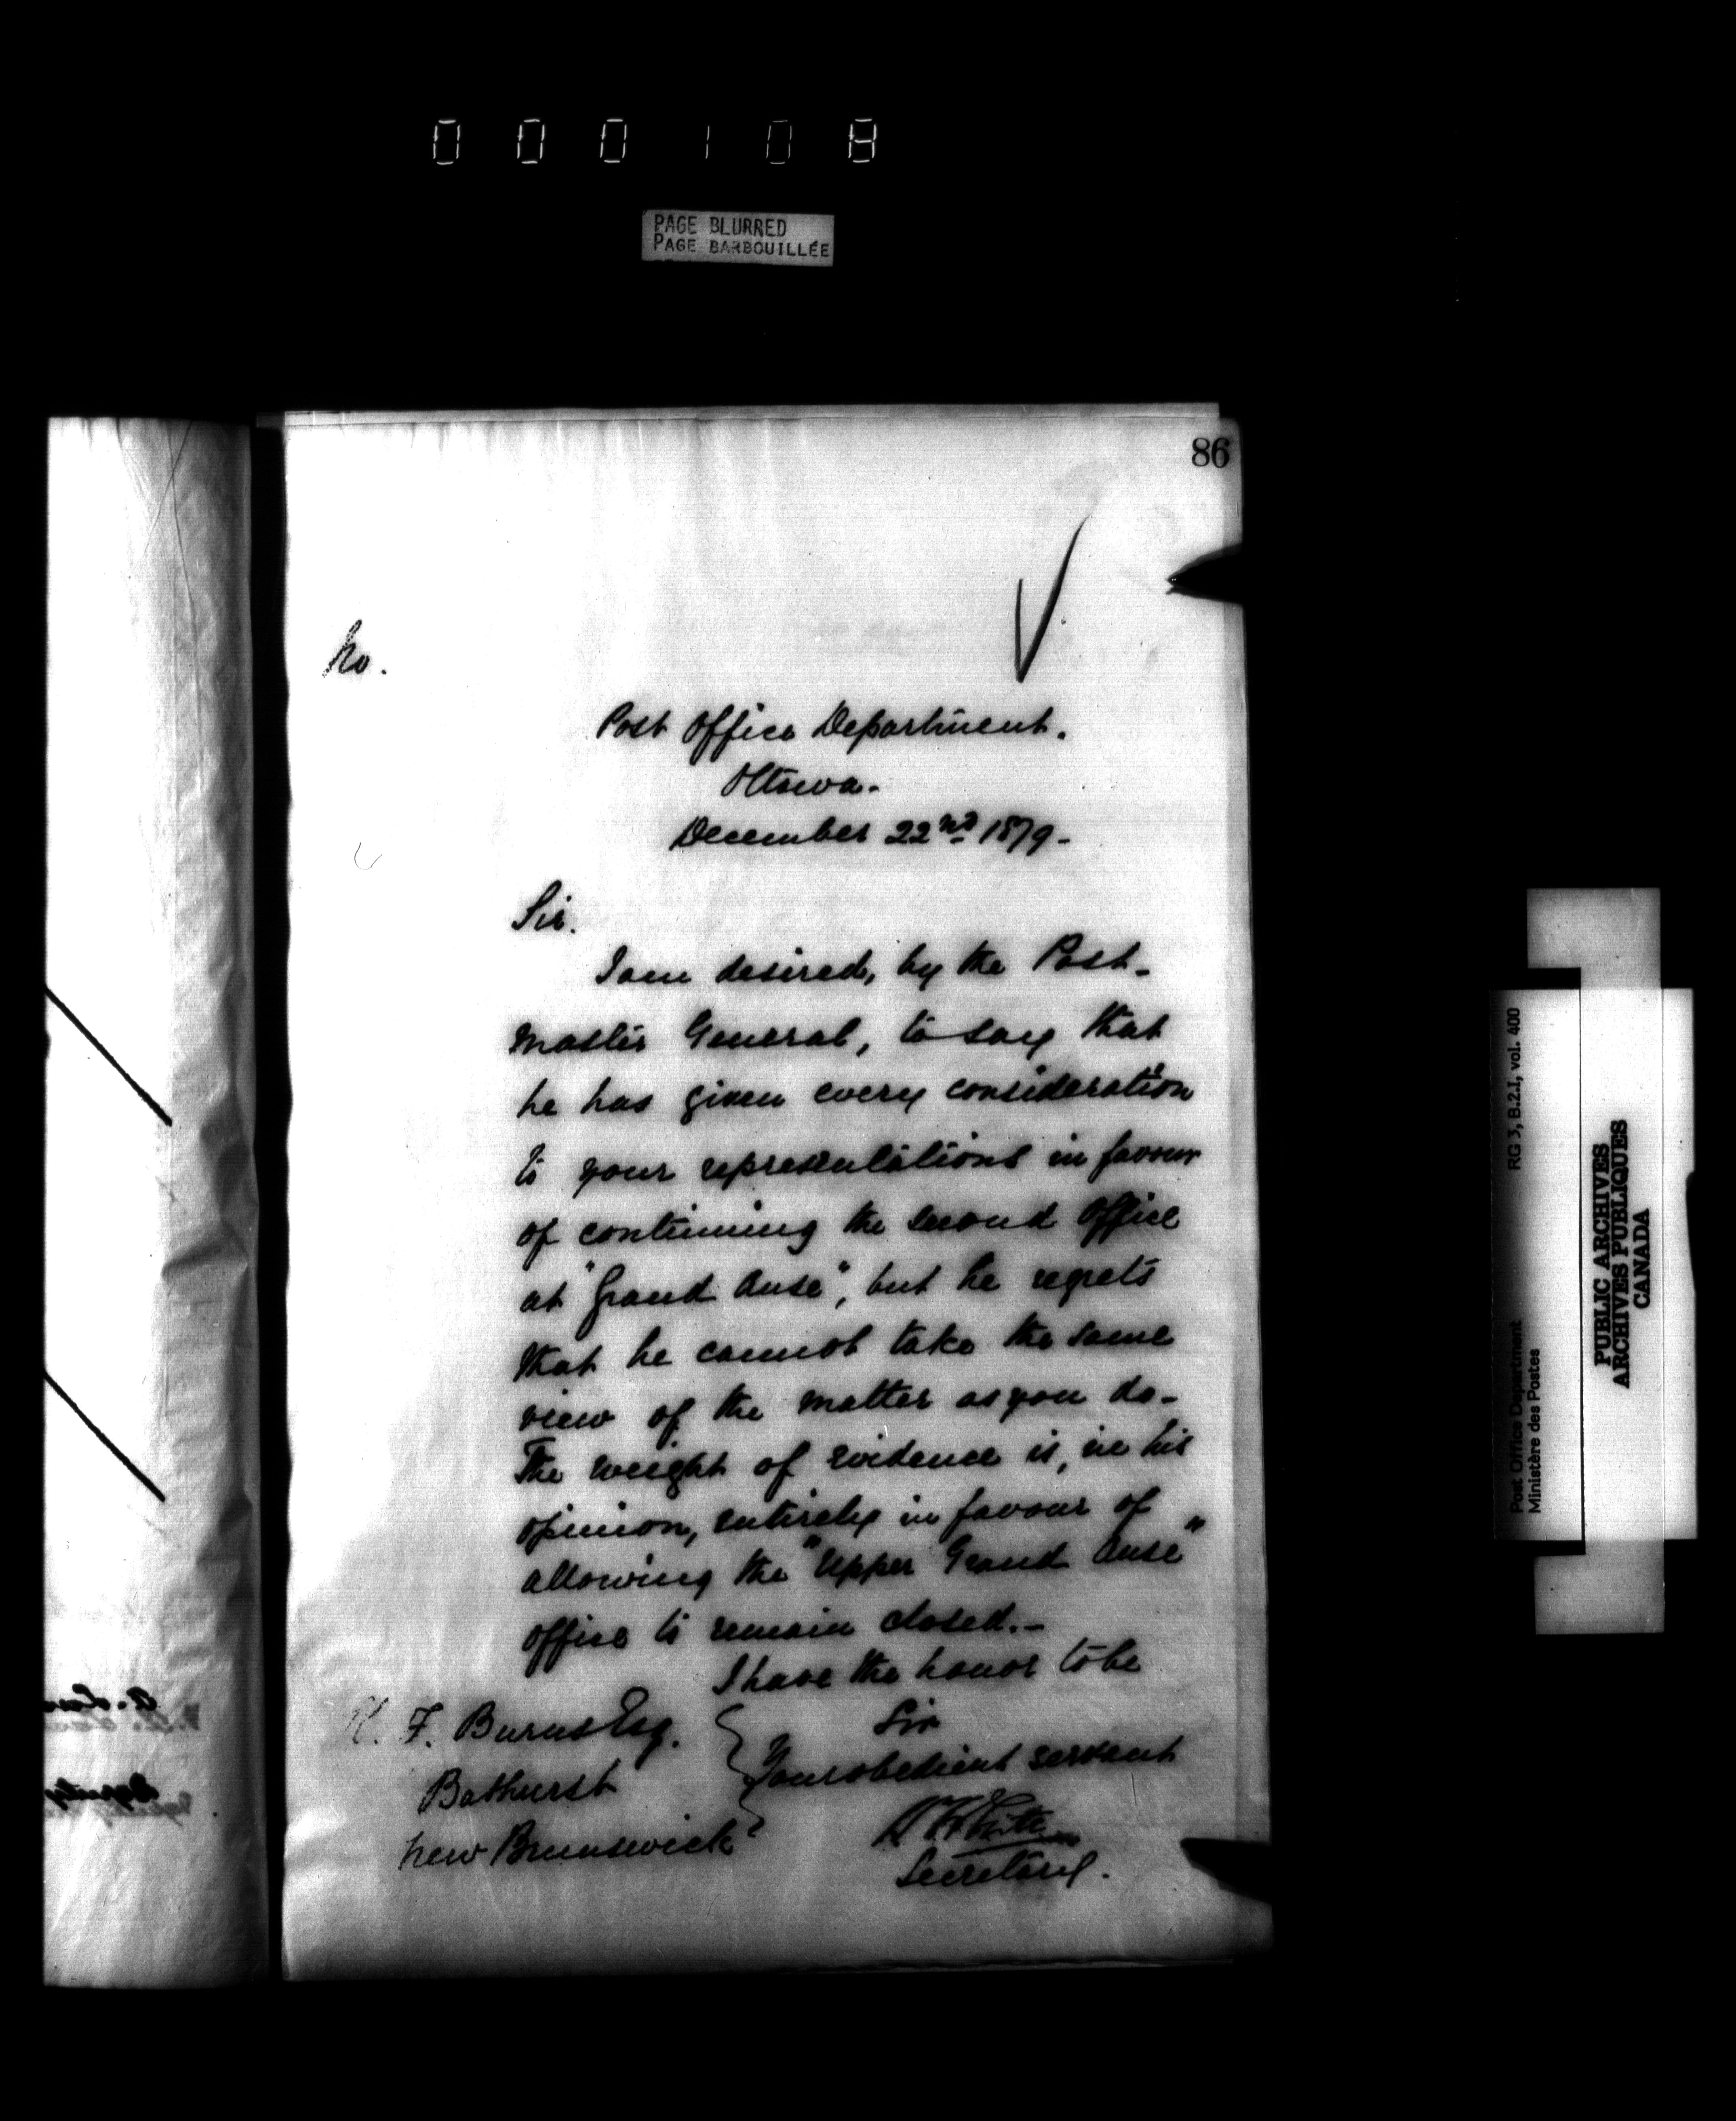 000108
PAGE BLURRED
PAGE BARBOUILLÉE
86
No.
Post Office Department.
Ottawa.
December 22nd 1879-
Sir.
I am desired, by the Post-
master General, to say that
he has given every consideration
to your representations in favour
of continuing the second Office
at "Grand Anse", but he regrets
that he cannot take the same
view of the matter as you do-
The weight of evidence is, in his
opinion, entirely in favour of
allowing the "Upper Grand Anse"
office to remain closed.-
I have the honor to be
Sir
Your obedient servant
White
Secretary.
K. F. Burns Esq.
Bathurst
New Brunswick
Post Office Department RG 3, B.2.I, vol. 400
Ministère des Postes
PUBLIC ARCHIVES
ARCHIVES PUBLIQUES
CANADA